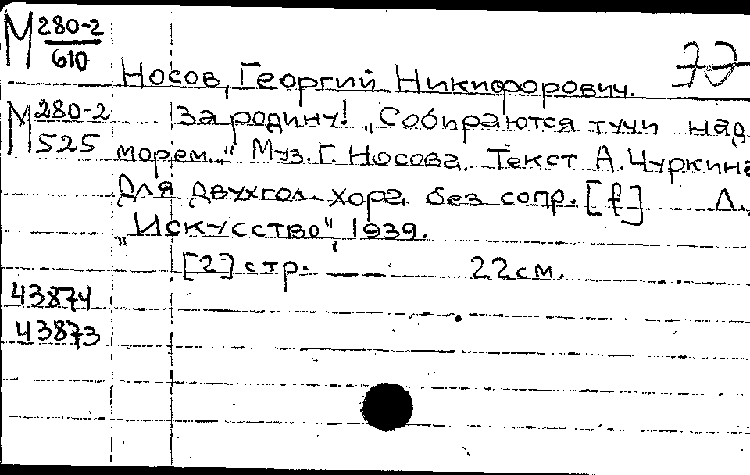 М 280-2
610
Носов, Георгий Никифорович.
М 280-2
525
За родину! „Собираются тучи над
морем..." Муз. Г. Носова. Текст А. Чуркина
Для двухгол. хора без сопр. [f] Л.
„Искусство", 1939.
[2] стр. — 22 см.
43874
43873